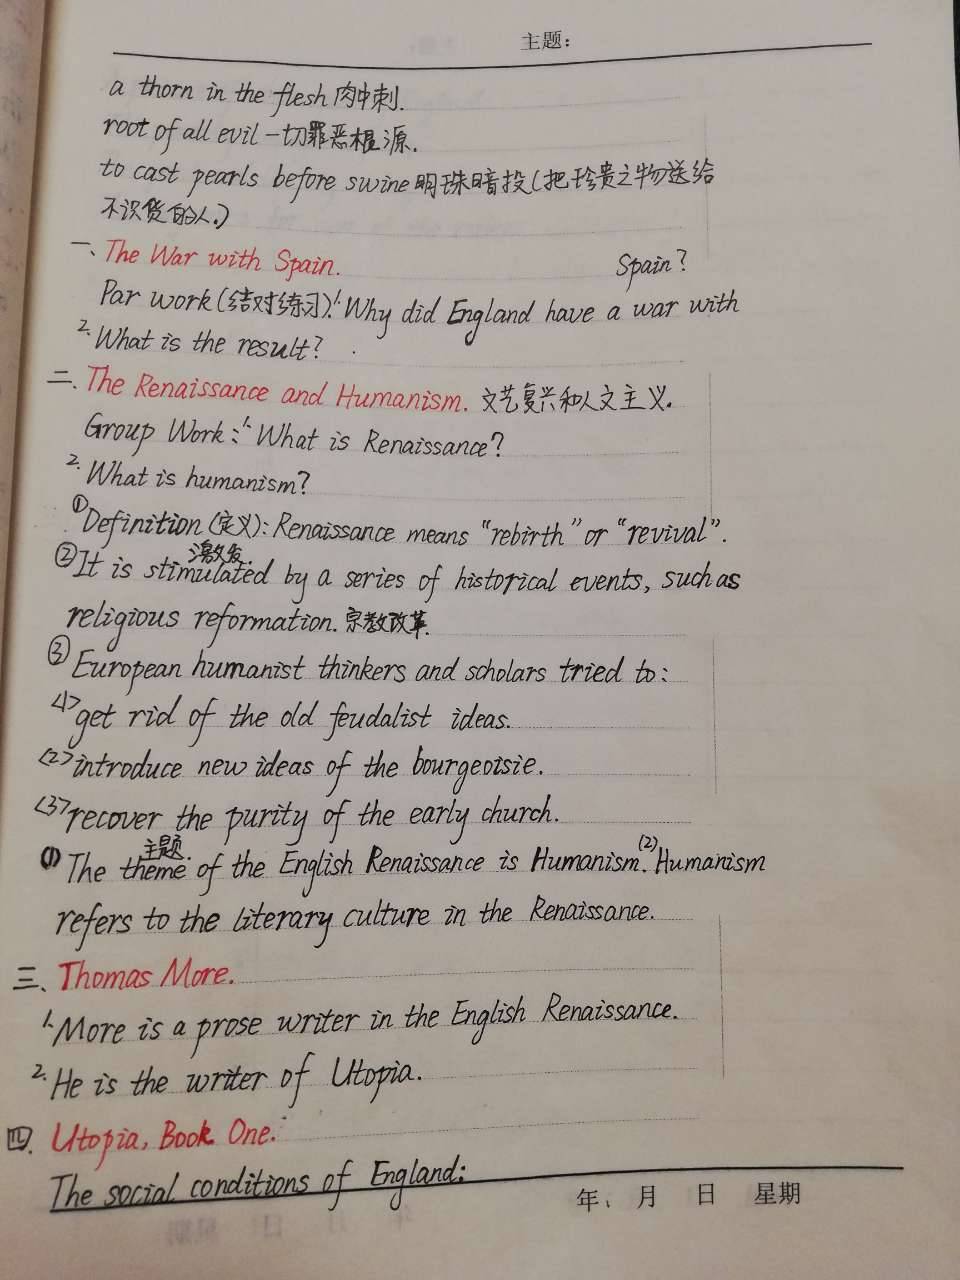 主题:
a thorn in the flesh 肉中刺.
root of all evil 一切罪恶根源.
to cast pearls before swine 明珠暗投(把珍贵之物送给
不识货的人.)
一、The War with Spain.
Spain?
Par work(结对练习): 1. Why did England have a war with
2. What is the result?
二、The Renaissance and Humanism. 文艺复兴和人文主义.
Group Work: 1. What is Renaissance?
2. What is humanism?
①Definition(定义): Renaissance means "rebirth" or "revival".
激发.
②It is stimulated by a series of historical events, such as
religious reformation. 宗教改革.
③European humanist thinkers and scholars tried to:
<1>get rid of the old feudalist ideas.
<2>introduce new ideas of the bourgeoisie.
<3>recover the purity of the early church.
主题.
(1)The theme of the English Renaissance is Humanism. (2)Humanism
refers to the literary culture in the Renaissance.
三、Thomas More.
1. More is a prose writer in the English Renaissance.
2. He is the writer of Utopia.
四. Utopia, Book One.
The social conditions of England:
年、 月 日 星期